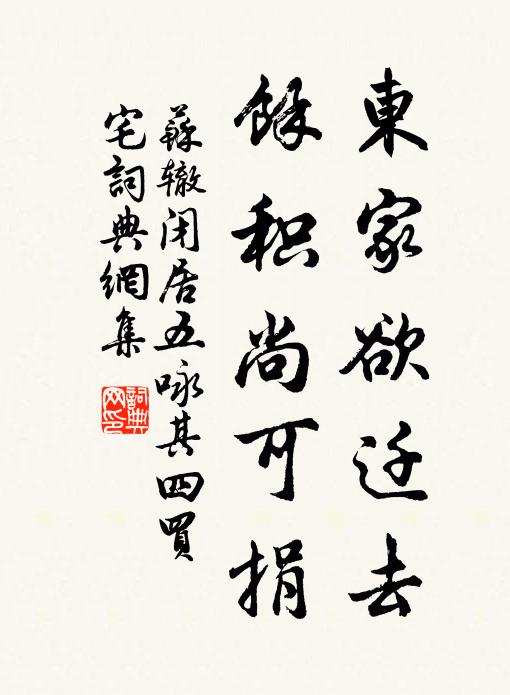 東家欲迁去
餘积尚可捐
蘇辙闭居五咏其四買
宅詞典網集
詞典
网印